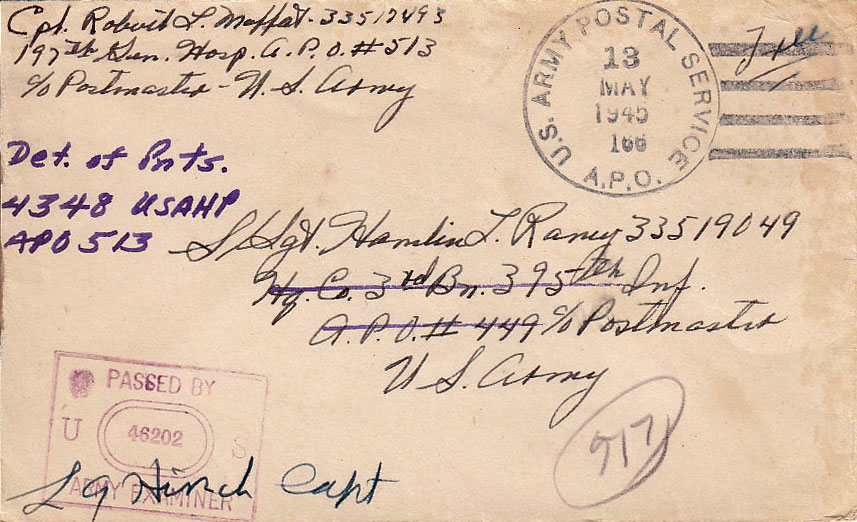 Cpl. Robert L. Moffat - 33517493
197th Gen. Hosp. A.P.O. # 513
c/o Postmaster - U.S. Army
U.S. ARMY POSTAL SERVICE
13
MAY
1945
166
A.P.O.
Free
Det. of Pnts.
4348 USAHP
APO 513
S/Sgt. Hamlin L. Raney 33519049
Hq. Co. 3rd Bn. 395th Inf.
A.P.O. # 449 c/o Postmaster
U.S. Army
PASSED BY
U 46202 S
ARMY EXAMINER
Hirsch Capt